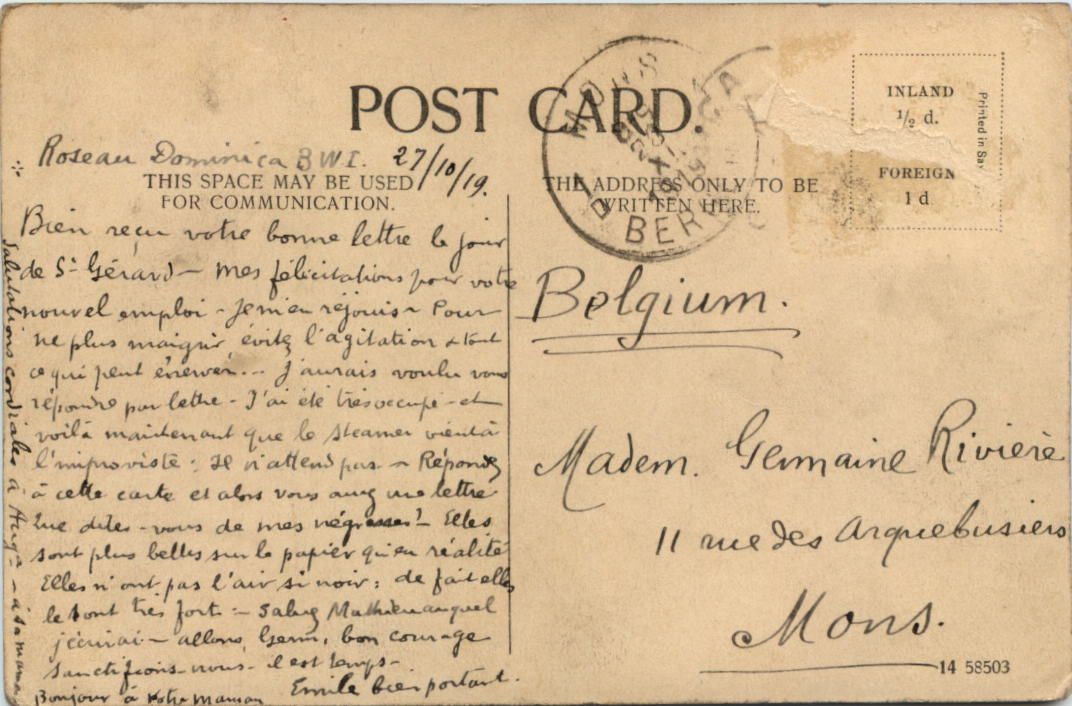 POST CARD.
Roseau Dominica BWI. 27/10/19.
THIS SPACE MAY BE USED
FOR COMMUNICATION.
Bien reçu votre bonne lettre le jour
de St Gérard – mes félicitations pour votre
nouvel emploi – Je m'en réjouis – Pour
ne plus maigrir, évitez l'agitation & tout
ce qui peut énerver... J'aurais voulu vous
répondre par lettre – J'ai été très occupé – et
voilà maintenant que le steamer vient à
l'improviste : Il n'attend pas – Répondez
à cette carte et alors vous aurez une lettre
Que dites-vous de mes négresses? – Elles
sont plus belles sur le papier qu'en réalité
Elles n'ont pas l'air si noir : de fait elles
le sont très fort :– Saluez Mathieu auquel
j'écrirai – allons, Germ, bon courage
sanctifions-nous – il est temps –
Bonjour à votre maman Emile bien portant.
Salutations cordiales à – à sa maman
MONS
BERGEN
THE ADDRESS ONLY TO BE
WRITTEN HERE.
INLAND
1/2 d.
FOREIGN
1 d
Printed in Sax
Belgium.
Madem. Germaine Rivière
11 rue des Arquebusiers
Mons.
14 58503